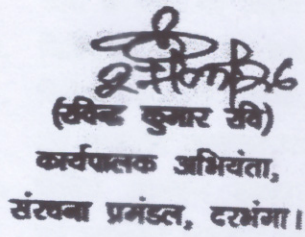 (रविन्द्र कुमार रवि)
कार्यपालक अभियंता,
संरचना प्रमंडल, दरभंगा।